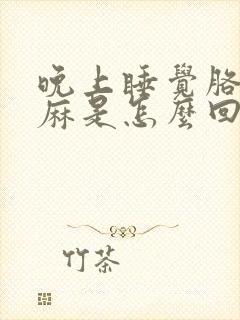 晚上睡覺胳
麻是怎麼回
竹茶